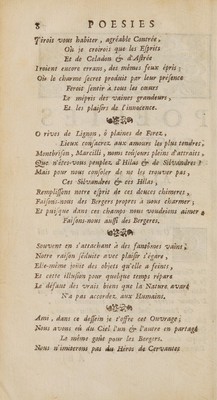 8 POESIES
J'irois vous habiter, agréable Contrée,
Où je croirois que les Esprits
Et de Celadon & d'Astrée
Iroient encore errans, des mêmes feux épris;
Où le charme secret produit par leur présence
Feroit sentir à tous les cœurs
Le mépris des vaines grandeurs,
Et les plaisirs de l'innocence.
O rives de Lignon, ô plaines de Forez,
Lieux consacrez aux amours les plus tendres,
Montbrison, Marcilli, noms toûjours pleins d'attraits,
Que n'êtes-vous peuplez d'Hilas & de Silvandres?
Mais pour nous consoler de ne les trouver pas,
Ces Silvandres & ces Hilas,
Remplissons notre esprit de ces douces chimeres,
Faisons-nous des Bergers propres à nous charmer;
Et puisque dans ces champs nous voudrions aimer,
Faisons-nous aussi des Bergeres.
Souvent en s'attachant à des fantômes vains,
Notre raison séduite avec plaisir s'égare,
Elle-même joüit des objets qu'elle a feints,
Et cette illusion pour quelque temps répare
Le défaut des vrais biens que la Nature avare
N'a pas accordez aux Humains.
Ami, dans ce dessein je t'offre cet Ouvrage;
Nous avons eû du Ciel l'un & l'autre en partage
Le même goût pour les Bergers.
Nous n'imiterons pas du Héros de Cervantes